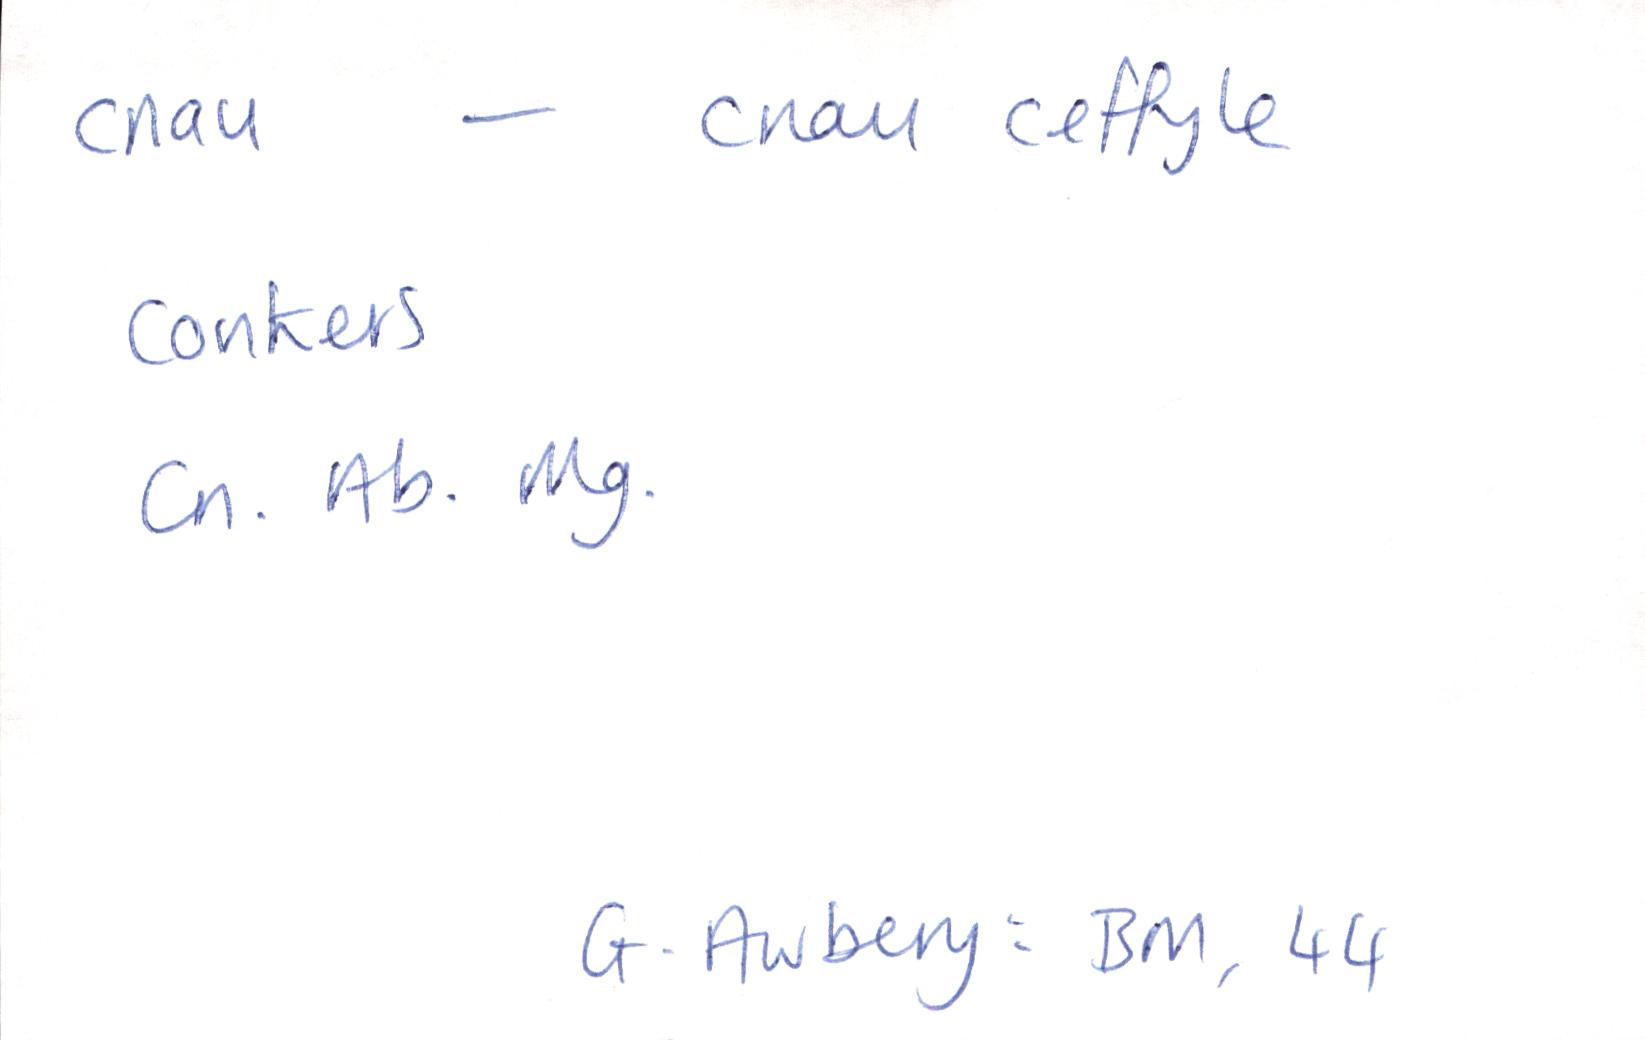 cnau — cnau ceffyle
conkers
Cn. Ab. Mg.
G. Awbery: BM, 44